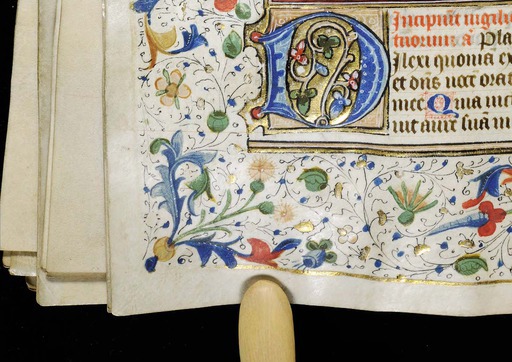 Incipiūt uigili
tuorum ā Pla
DIlexi quoniā ex
et dn̄s uocē orat
mee Quia incl
nauit aurē suā m